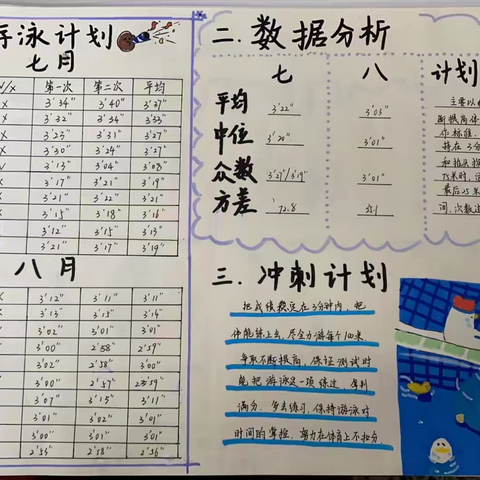 游泳计划
七月
第一次 第二次 平均
3'34" 3'40" 3'37"
3'32" 3'34" 3'33"
3'23" 3'31" 3'27"
3'30" 3'24" 3'27"
3'13" 3'04" 3'08"
3'17" 3'21" 3'19"
3'21" 3'22" 3'21"
3'15" 3'18" 3'16"
3'12" 3'15" 3'13"
3'21" 3'17" 3'19"
八月
3'12" 3'11" 3'11"
3'13" 3'15" 3'14"
3'02" 3'01" 3'01"
3'00" 2'58" 2'59"
3'02" 2'58" 3'00"
3'00" 2'57" 2'59"
3'07" 3'15" 3'11"
3'01" 3'02" 3'01"
3'00" 3'01" 3'01"
2'55" 2'58" 2'56"
二.数据分析
七 八 计划
平均 3'22" 3'03"
中位 3'20" 3'01"
众数 3'27"/3'19" 3'01"
方差 72.8
三.冲刺计划
把成绩稳定在3分钟内，把
体能练上去，尽全力游每个100米
争取不断提高，保证测试时
能把游泳这一项练过，拿到
满分。多去练习，保持游泳时
时间的掌控，努力在体育上不扣分。